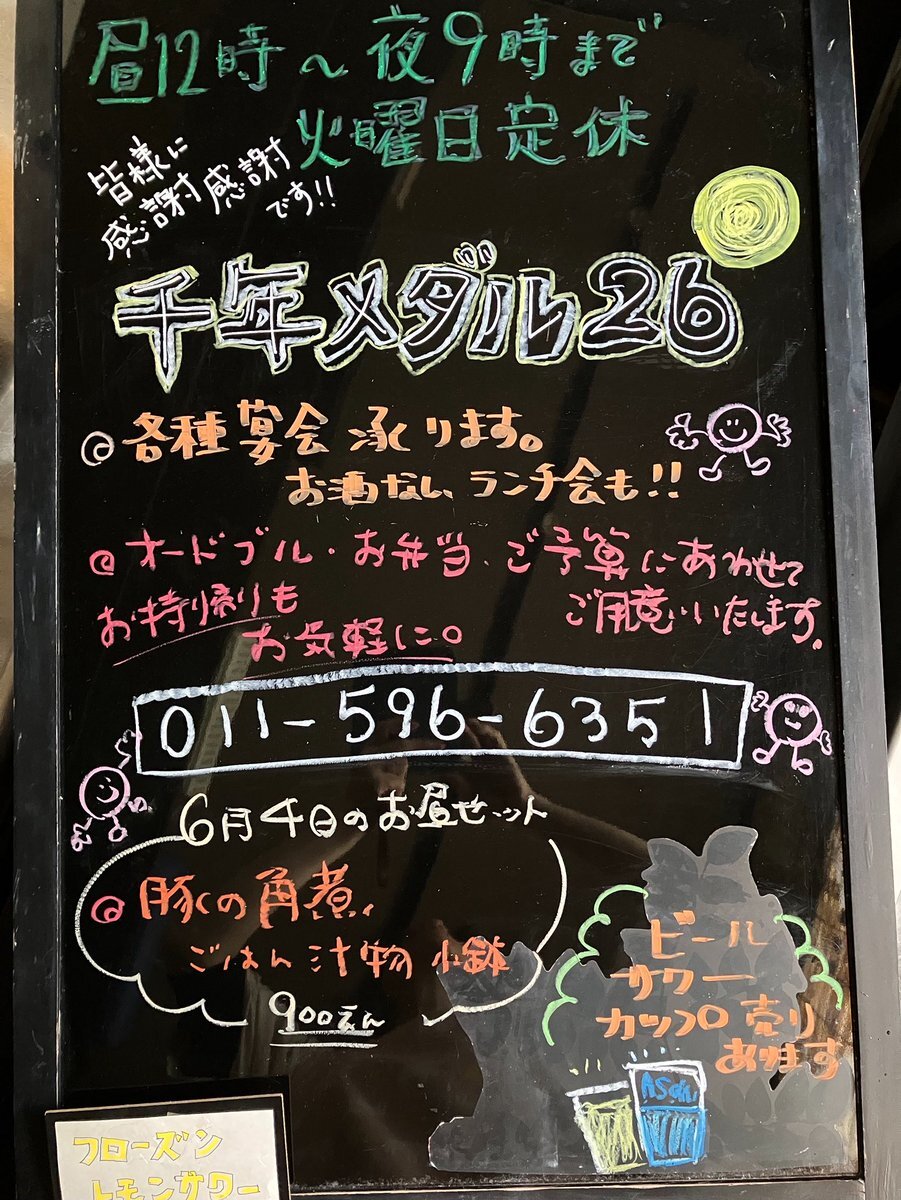 昼12時～夜9時まで
火曜日定休
皆様に
感謝感謝
です!!
千年メダル26
各種宴会承ります。
お酒なし、ランチ会も!!
オードブル・お弁当、ご予算にあわせて
ご用意いたします。
お持ち帰りも
お気軽に。
011-596-6351
6月4日のお昼セット
豚の角煮、
ごはん 汁物 小鉢
900えん
ビール
サワー
カップ売り
あります
Asahi
フローズン
レモンサワー